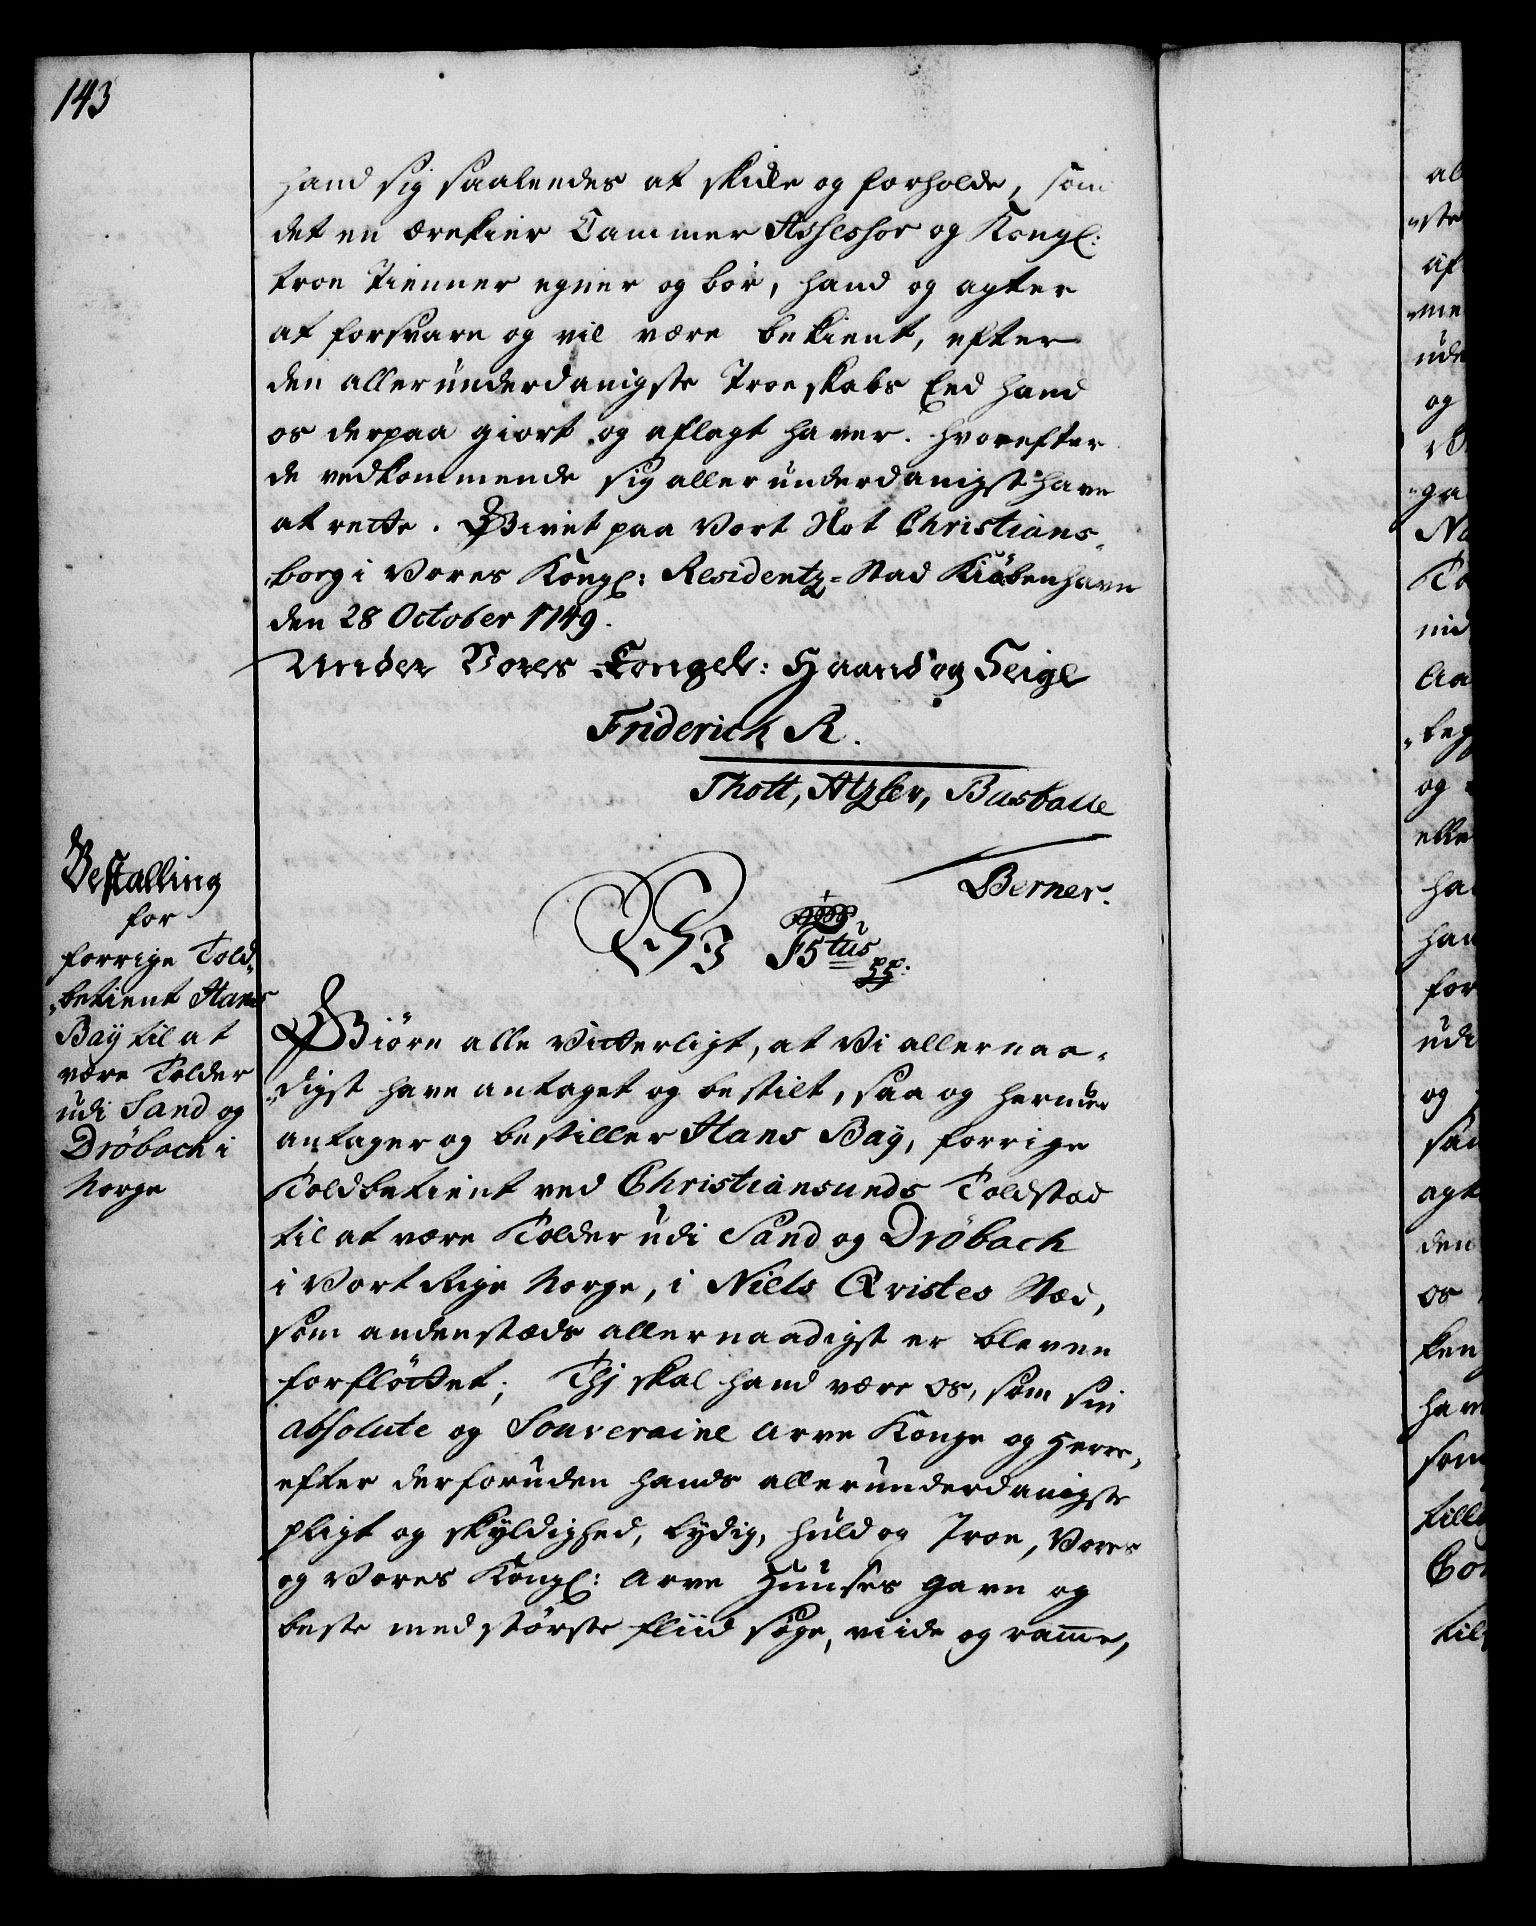 143
hand sig saaledes at skicke og forholde, som
det en ærekier Cammer Assessor og Kongl:
troe Tienner egner og bör, hand og agter
at forsvare og vil være bekient, efter
den allerunderdanigste Troeskabs Eed hand
os derpaa giort og aflagt haver. Hvorefter
de vedkommende sig allerunderdanigst have
at rette. Givet paa Vort Slot Christians-
„borg i Vores Kongl: Residentz-Stad Kiöbenhavn
den 28 October 1749.
Under Vores Kongel: Haand og Seigl
Friderich R.
Thott, Atzlev, Busballe
Berner.
Bestalling
for
forrige Told-
„betient Hans
Baÿ til at
være Tolder
udi Sand og
Dröbach i
Norge
Wi F5tus pp.
Giöre alle Vitterligt, at Vi allernaa-
„digst have antaget og bestilt, saa og hermed
antager og bestiller Hans Baÿ, forrige
Toldbetient ved Christiansunds Toldsted
til at være Tolder udi Sand og Dröbach
i Vort Rige Norge, i Niels Qvistes Sted,
som andenstæds allernaadigst er bleven
forflöttet; Thj skal hand være os, som sin
absolute og Souveraine Arve Konge og Herre,
efter derforuden hands allerunderdanigste
pligt og skÿldighed, lÿdig, huld og Troe, Vores
og Vores Kongl: Arve Huuses gavn og
beste med störste fliid söge, viide og ramme,